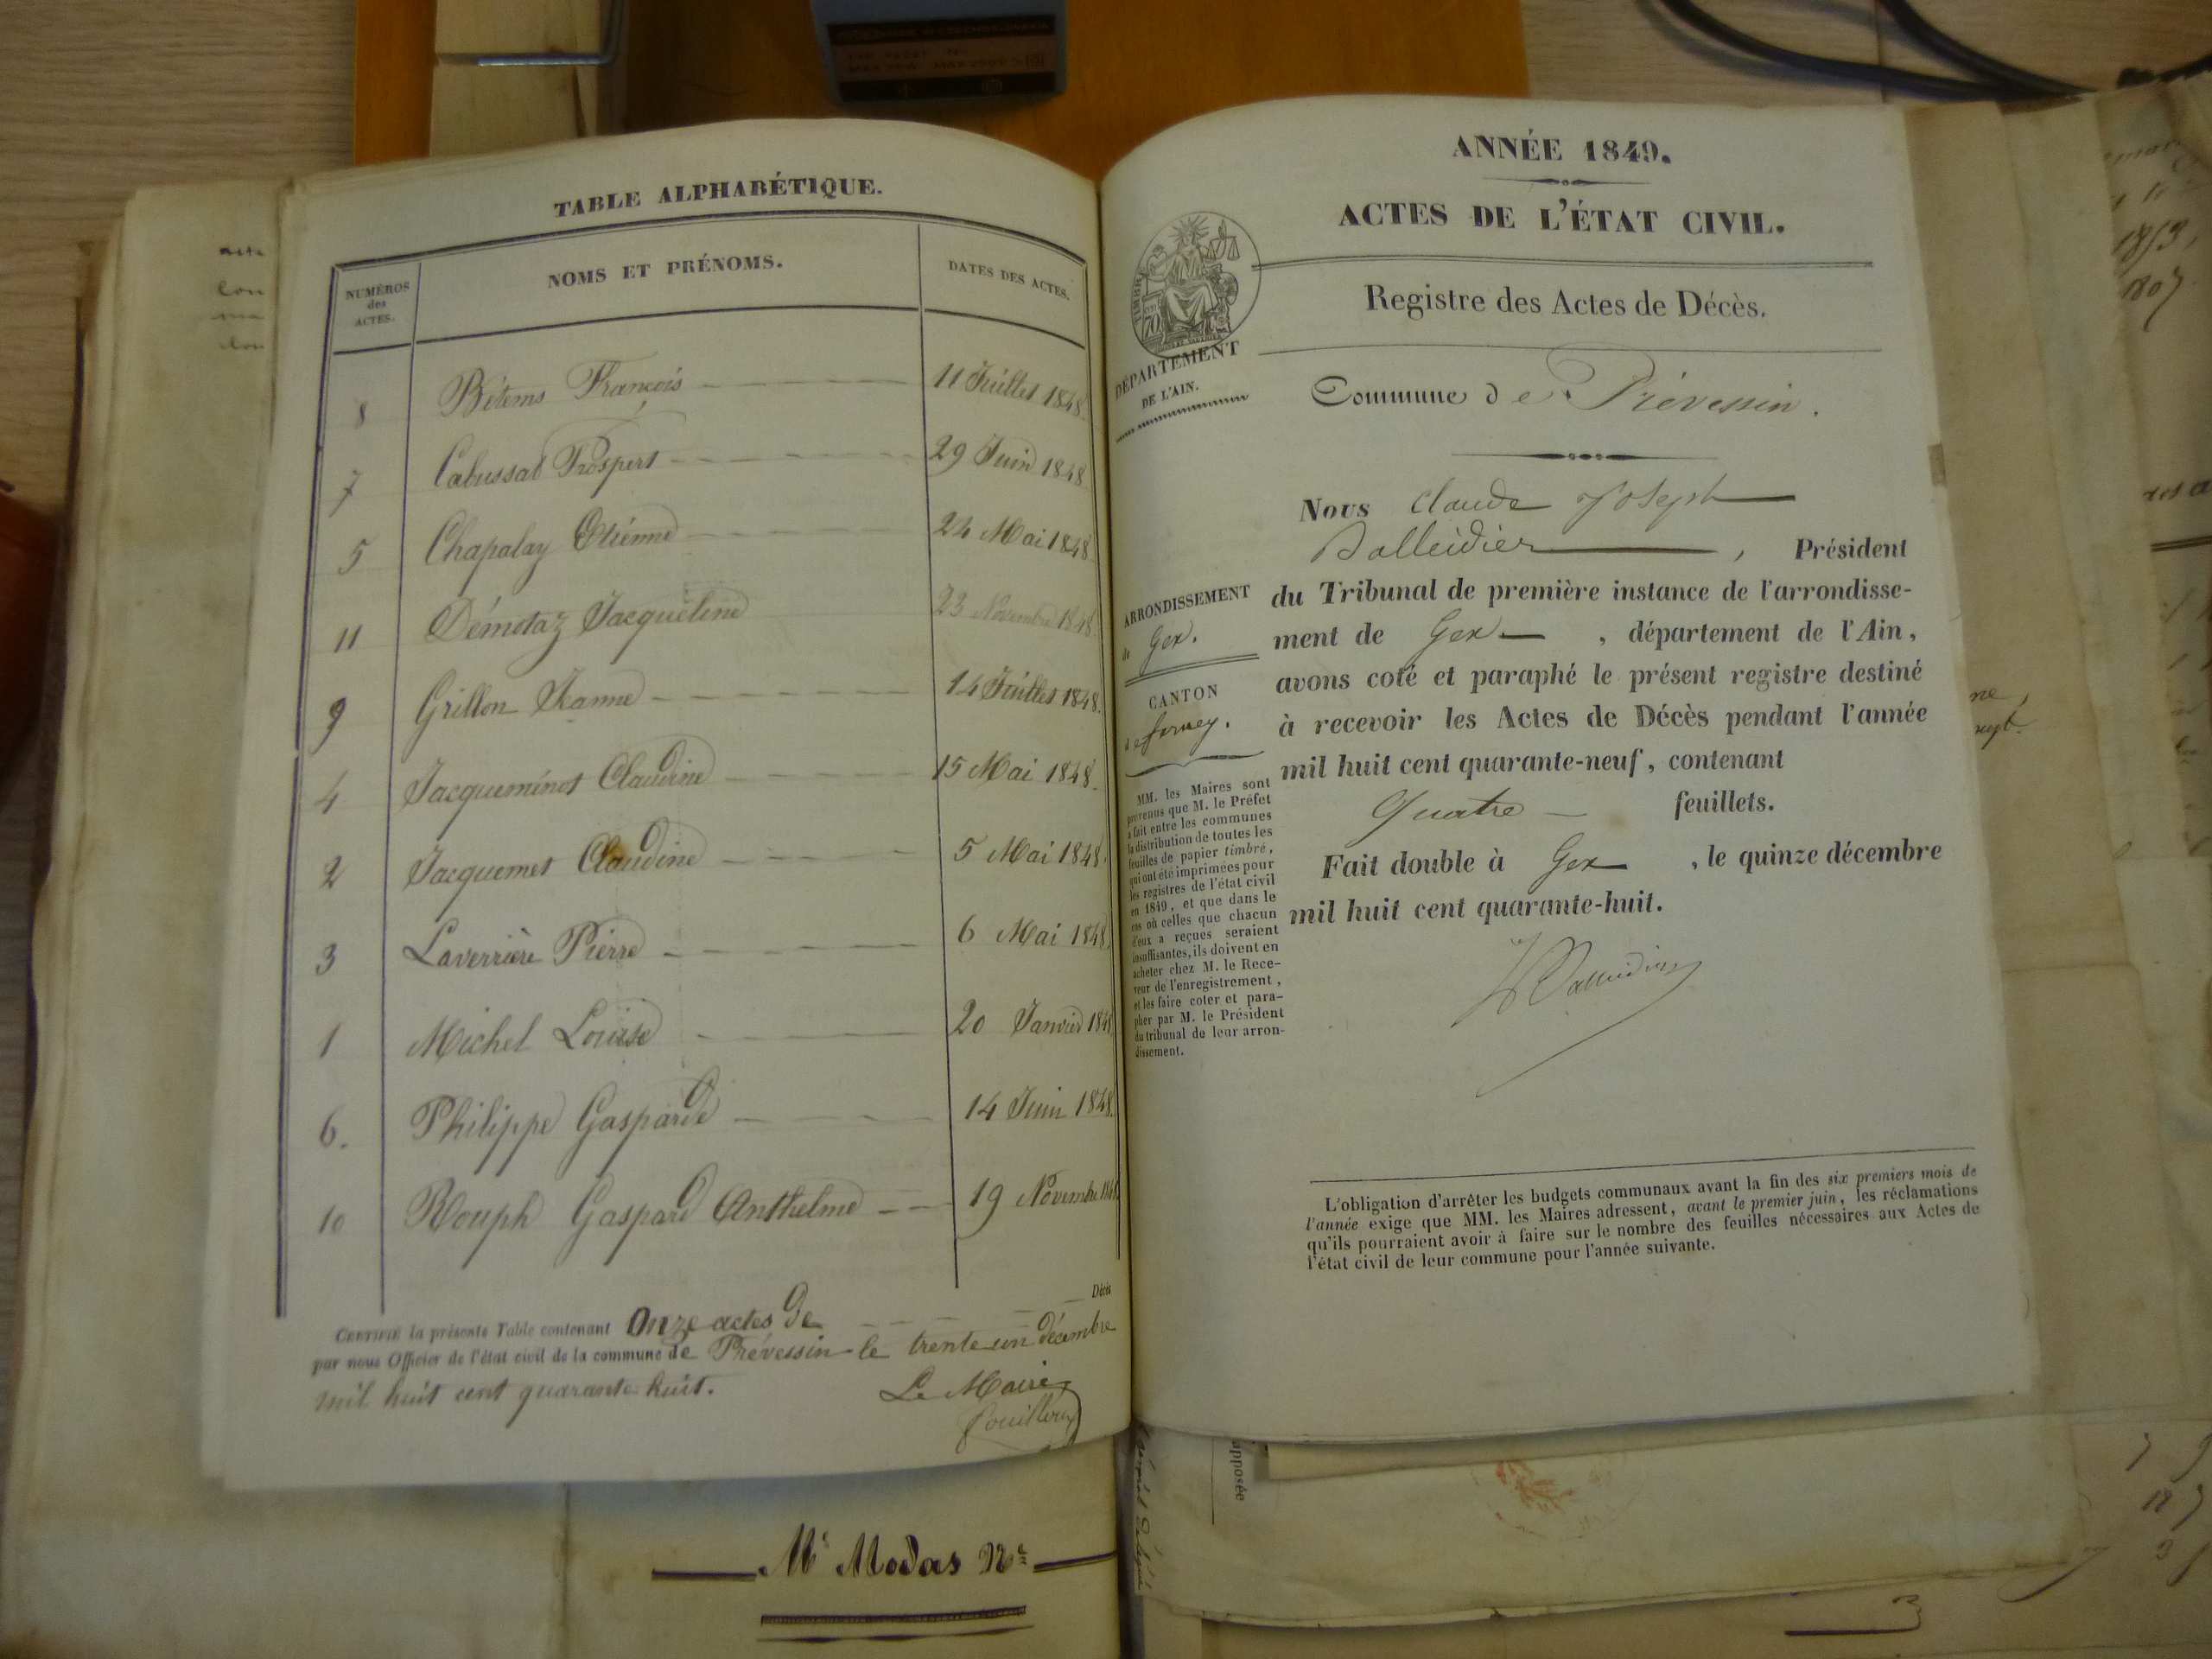 TABLE ALPHABÉTIQUE.
NUMÉROS des ACTES.
NOMS ET PRÉNOMS.
DATES DES ACTES.
8 Bétems François 11 Juillet 1848
7 Cabussat Prospert 29 Juin 1848
5 Chapalay Etiénne 24 Mai 1848
11 Démotaz Jacqueline 23 Novembre 1848
9 Grillon Jeanne 14 Juillet 1848.
4 Jacqueminot Claudine 15 Mai 1848.
2 Jacquemet Claudine 5 Mai 1848.
3 Laverrière Pierre 6 Mai 1848
1 Michel Louise 20 Janvier 1848
6. Philippe Gasparde 14 Juin 1848.
10 Rouph Gaspard Anthelme 19 Novembre 1848
CERTIFIÉ la présente Table contenant Onze actes de Décès
par nous Officier de l'état civil de la commune de Prévessin le trente un décembre
mil huit cent quarante huit.
Le Maire
Mᵉ Modas Nʳᵉ
ANNÉE 1849.
ACTES DE L'ÉTAT CIVIL.
Registre des Actes de Décès.
DÉPARTEMENT
DE L'AIN.
Commune de Prévessin.
Nous Claude Joseph
Balleidier, Président
du Tribunal de première instance de l'arrondisse-
ment de Gex, département de l'Ain,
avons coté et paraphé le présent registre destiné
à recevoir les Actes de Décès pendant l'année
mil huit cent quarante-neuf, contenant
Quatre feuillets.
Fait double à Gex, le quinze décembre
mil huit cent quarante-huit.
ARRONDISSEMENT
de Gex.
CANTON
de ferney.
MM. les Maires sont
prévenus que M. le Préfet
a fait entre les communes
la distribution de toutes les
feuilles de papier timbré,
qui ont été imprimées pour
les registres de l'état civil
en 1849, et que dans le
cas où celles que chacun
d'eux a reçues seraient
insuffisantes, ils doivent en
acheter chez M. le Rece-
veur de l'enregistrement,
et les faire coter et para-
pher par M. le Président
du tribunal de leur arron-
dissement.
L'obligation d'arrêter les budgets communaux avant la fin des six premiers mois de
l'année exige que MM. les Maires adressent, avant le premier juin, les réclamations
qu'ils pourraient avoir à faire sur le nombre des feuilles nécessaires aux Actes de
l'état civil de leur commune pour l'année suivante.
apposée